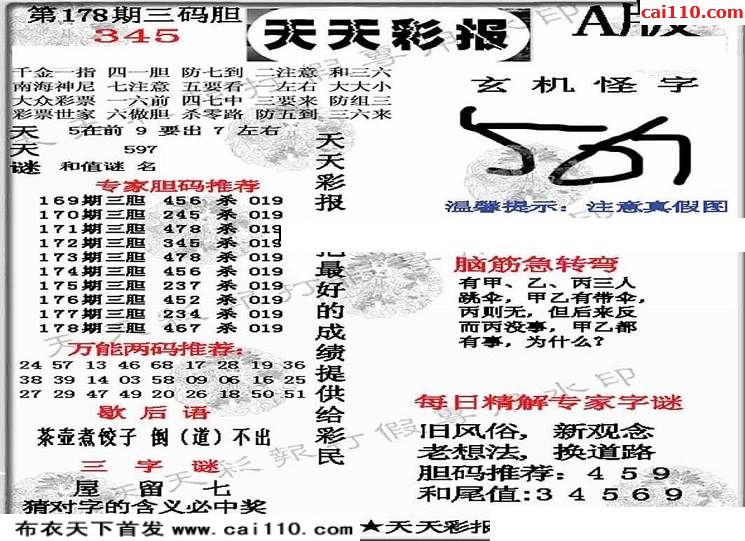 第178期三码胆
345
天天彩报
A版
cai110.com
千金一指 四一胆 防七到 二注意 和三六
南海神尼 七注意 五要看 左右 大大小
大众彩票 一六前 四七中 三要来 防组三
彩票世家 六做胆 杀零路 防五到 三六来
天 5在前 9 要出 7 左右
天 597
谜 和值谜 名
专家胆码推荐
169期三胆 456 杀 019
170期三胆 245 杀 019
171期三胆 478 杀 019
172期三胆 345 杀 019
173期三胆 478 杀 019
174期三胆 456 杀 019
175期三胆 237 杀 019
176期三胆 452 杀 019
177期三胆 234 杀 019
178期三胆 467 杀 019
万能两码推荐:
24 57 13 46 68 17 28 19 36
38 39 14 03 58 09 06 16 25
27 29 47 49 20 26 18 50 51
歇后语
茶壶煮饺子 倒（道）不出
三字谜
屋 留 七
猜对字的含义必中奖
天天彩报
把最好的成绩提供给彩民
玄机怪字
温馨提示: 注意真假图
脑筋急转弯
有甲、乙、丙三人
跳伞，甲乙有带伞，
丙则无，但后来反
而丙没事，甲乙都
有事，为什么？
每日精解专家字谜
旧风俗，新观念
老想法，换道路
胆码推荐：459
和尾值:34569
布衣天下首发 www.cai110.com
★天天彩报